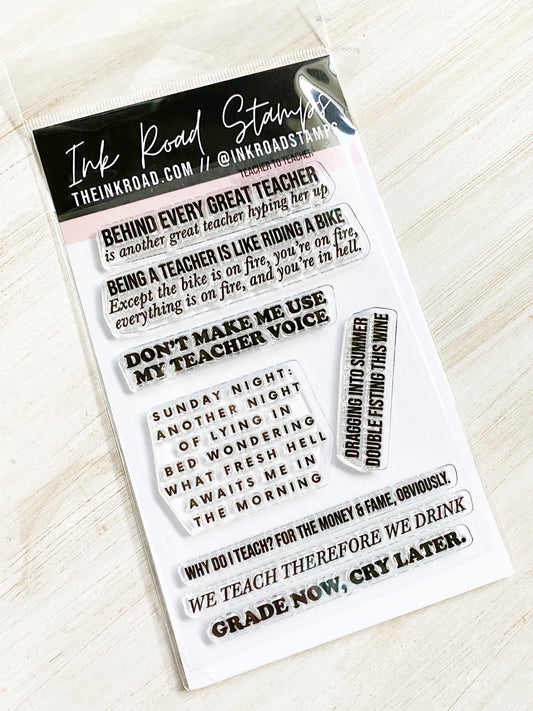 Ink Road Stamps
THEINKROAD.COM // @INKROADSTAMPS
TEACHER TO TEACHER
BEHIND EVERY GREAT TEACHER
is another great teacher hyping her up
BEING A TEACHER IS LIKE RIDING A BIKE
Except the bike is on fire, you're on fire,
everything is on fire, and you're in hell.
DON'T MAKE ME USE
MY TEACHER VOICE
DRAGGING INTO SUMMER
DOUBLE FISTING THIS WINE
SUNDAY NIGHT:
ANOTHER NIGHT
OF LYING IN
BED WONDERING
WHAT FRESH HELL
AWAITS ME IN
THE MORNING
WHY DO I TEACH? FOR THE MONEY & FAME, OBVIOUSLY.
WE TEACH THEREFORE WE DRINK
GRADE NOW, CRY LATER.